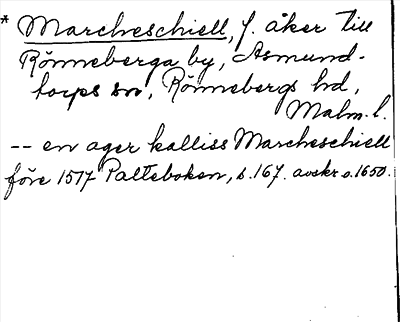 * Marcheschiell, f. åker till
Rönneberga by, Asmund-
torps sn, Rönnebergs hd,
Malm. l.
-- en ager kalliss Marcheschiell
före 1517 Palteboken, s. 167. avskr o. 1650.